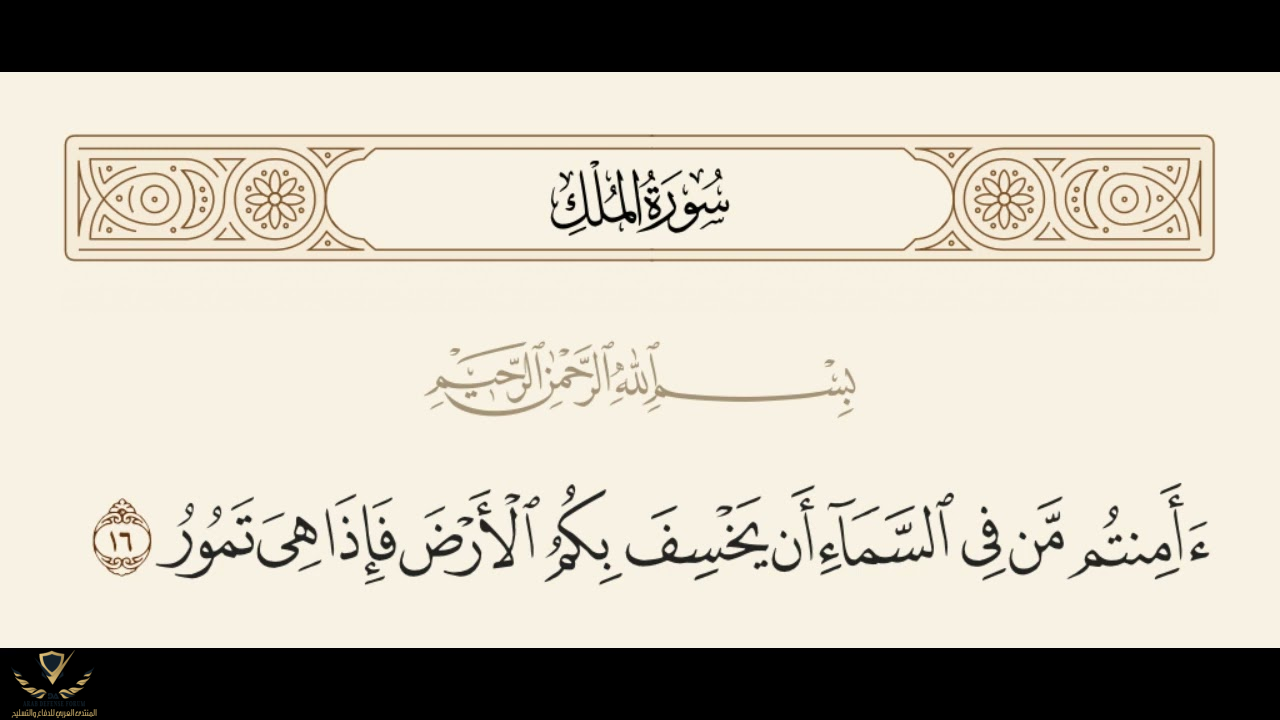 سُورَةُ المُلْكِ
بِسْمِ ٱللَّهِ ٱلرَّحْمَٰنِ ٱلرَّحِيمِ
ءَأَمِنتُم مَّن فِى ٱلسَّمَآءِ أَن يَخْسِفَ بِكُمُ ٱلْأَرْضَ فَإِذَا هِىَ تَمُورُ ١٦
المنتدى العربي للدفاع والتسليح